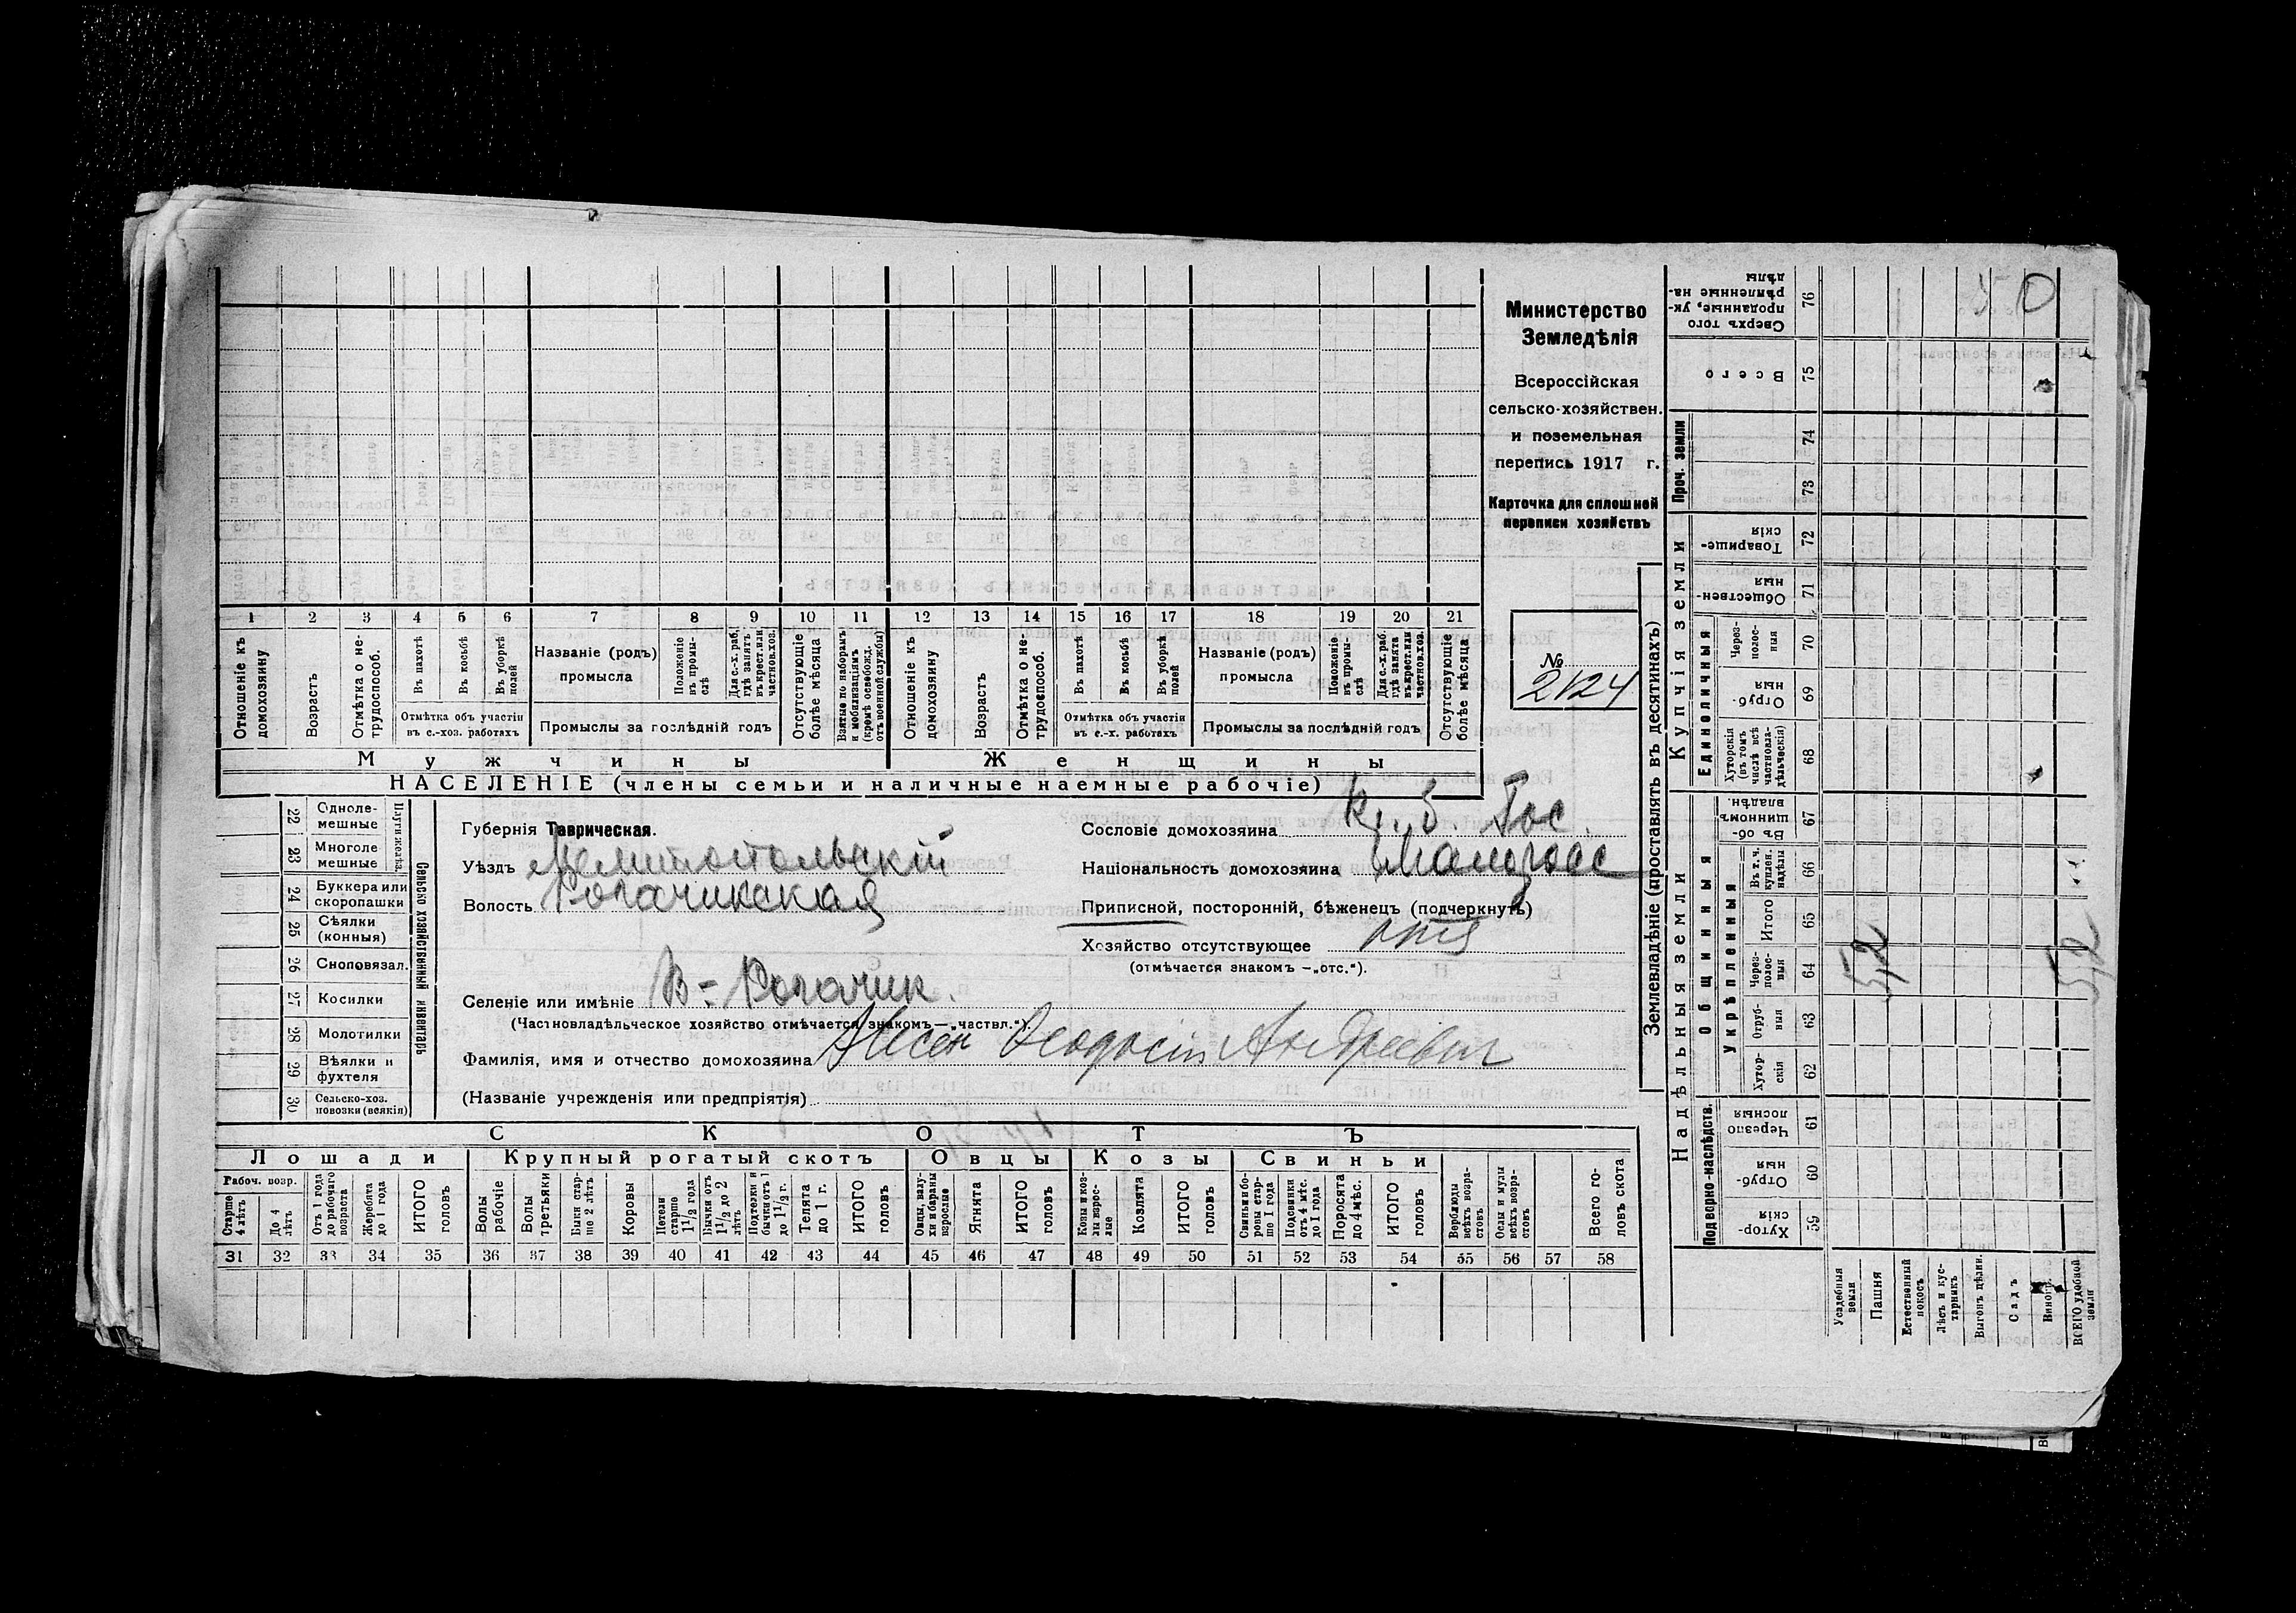 Министерство
Земледѣлія
Всероссійская
сельско-хозяйствен.
и поземельная
перепись 1917 г.
Карточка для сплошной
переписи хозяйствъ
№
2124
1 2 3 4 5 6 7 8 9 10 11 12 13 14 15 16 17 18 19 20 21
Отношеніе къ домохозяину
Возрастъ
Отмѣтка о не-трудоспособ.
Въ пахотѣ
Въ косьбѣ
Въ уборкѣ полей
Отмѣтка объ участіи
въ с.-хоз. работахъ
Названіе (родъ)
промысла
Положеніе въ промы-слѣ
Для с.-х. раб. гдѣ занятъ въ крест. или частнов. хоз.
Промыслы за послѣдній годъ
Отсутствующіе болѣе мѣсяца
Взятые по наборамъ и мобилизаціямъ (кромѣ освобожд. отъ военной службы)
Отношеніе къ домохозяину
Возрастъ
Отмѣтка о не-трудоспособ.
Въ пахотѣ
Въ косьбѣ
Въ уборкѣ полей
Отмѣтка объ участіи
въ с.-х. работахъ
Названіе (родъ)
промысла
Положеніе въ промы-слѣ
Для с.-х. раб. гдѣ занята въ крест. или частнов. хоз.
Промыслы за послѣдній годъ
Отсутствующіе болѣе мѣсяца
Мужчины Женщины
НАСЕЛЕНІЕ (члены семьи и наличные наемные рабочіе)
Сельско хозяйственный инвентарь
Плуги желѣз.
22 Одноле-мешные
23 Многоле мешные
24 Буккера или скоропашки
25 Сѣялки (конныя)
26 Сноповязал.
27 Косилки
28 Молотилки
29 Вѣялки и фухтеля
30 Сельско-хоз. повозки (всякія)
Губернія Таврическая.
Уѣздъ Мелитопольскій
Волость Рогачикская
Селеніе или имѣніе В-Рогачик.
(Частновладѣльческое хозяйство отмѣчается знакомъ—„частвл.“).
Фамилія, имя и отчество домохозяина Феодосій Андреевич
(Названіе учрежденія или предпріятія)
Сословіе домохозяина Кр. б. Гос.
Національность домохозяина Малоросс
Приписной, посторонній, бѣженецъ (подчеркнуть)
Хозяйство отсутствующее
(отмѣчается знакомъ —„отс.“).
СКОТЪ
Лошади Крупный рогатый скотъ Овцы Козы Свиньи
Рабоч. возр.
Старше 4 лѣтъ
До 4 лѣтъ
Отъ 1 года до рабочаго возраста
Жеребята до 1 года
ИТОГО головъ
Волы рабочіе
Волы третьяки
Быки стар-ше 2 лѣтъ
Коровы
Нетели старше 1½ года
Бычки отъ 1½ до 2 лѣтъ
Подтелки и бычки отъ 1 до 1½ г.
Телята до 1 г.
ИТОГО головъ
Овцы, валу-хи и бараны взрослые
Ягнята
ИТОГО головъ
Козы и коз-лы взрос-лые
Козлята
ИТОГО головъ
Свиньи и бо-ровы стар-ше 1 года
Подсвинки отъ 4 мѣс. до 1 года
Поросята до 4 мѣс.
ИТОГО головъ
Верблюды всѣхъ возра-стовъ
Ослы и мулы всѣхъ возра-стовъ
Всего го-ловъ скота
31 32 33 34 35 36 37 38 39 40 41 42 43 44 45 46 47 48 49 50 51 52 53 54 55 56 57 58
Землевладѣніе (проставлять въ десятинахъ)
Надѣльныя земли
Купчія земли
Проч. земли
Подворно-наслѣдств.
Общинныя
Укрѣпленныя
Единоличныя
Сверхъ того проданные, ук-рѣпленные на-дѣлы 76
Всего 75
74
73
Товарище-скія 72
Обществен-ныя 71
Через-полос-ныя 70
Отруб-ныя 69
Хуторскія (въ томъ числѣ всѣ частновла-дѣльческія) 68
Въ об-щинномъ владѣн. 67
Въ т. ч. куплен. надѣлы 66
Итого 65
Через-полос-ныя 64
Отруб-ныя 63
Хутор-скія 62
Черезпо лосныя 61
Отруб-ныя 60
Хутор-скія 59
5,2
5,2
Усадебныя земли
Пашня
Естественный покосъ
Лѣсъ и кус-тарникъ
Выгонъ цѣлин.
Садъ
Виногр.
ВСЕГО удобной земли